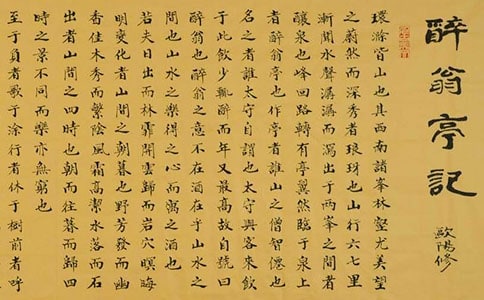 醉翁亭記
歐陽修
環滁皆山也其西南諸峯林壑尤美望
之蔚然而深秀者琅玡也山行六七里
漸聞水聲潺潺而瀉出于兩峯之間者
釀泉也峰回路轉有亭翼然臨于泉上
者醉翁亭也作亭者誰山之僧智僊也
名之者誰太守自謂也太守與客來飲
于此飲少輒醉而年又最高故自號曰
醉翁也醉翁之意不在酒在乎山水之
間也山水之樂得之心而寓之酒也
若夫日出而林霏開雲歸而岩穴暝晦
明變化者山間之朝暮也野芳發而幽
香佳木秀而繁陰風霜高潔水落而石
出者山間之四時也朝而往暮而歸四
時之景不同而樂亦無窮也
至于負者歌于涂行者休于樹前者呼